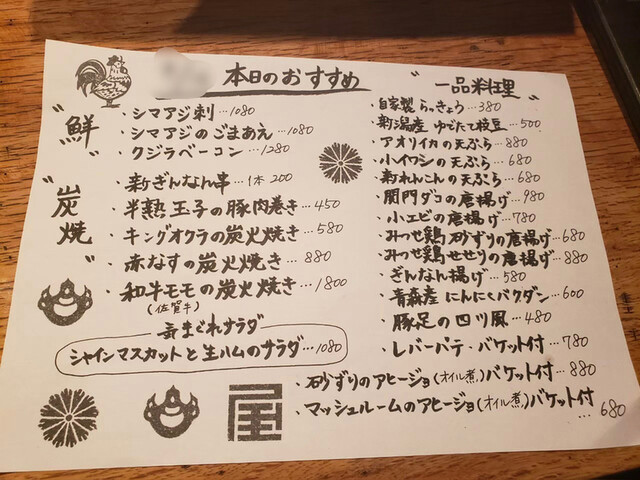 本日のおすすめ
"鮮"
・シマアジ刺…1080
・シマアジのごまあえ…1080
・クジラベーコン…1280
"炭焼"
・新ぎんなん串…1本200
・半熟玉子の豚肉巻き…450
・キングオクラの炭火焼き…580
・赤なすの炭火焼き…880
・和牛モモの炭火焼き…1800
(佐賀牛)
気まぐれサラダ
シャインマスカットと生ハムのサラダ…1080
屋
"一品料理"
・自家製らっきょう…380
・新潟産ゆでたて枝豆…500
・アオリイカの天ぷら…880
・小イワシの天ぷら…680
・新れんこんの天ぷら…680
・関門ダコの唐揚げ…980
・小エビの唐揚げ…780
・みつせ鶏砂ずりの唐揚げ…680
・みつせ鶏せせりの唐揚げ…880
・ぎんなん揚げ…580
・青森産にんにくバクダン…600
・豚足の四川風…480
・レバーパテ・バケット付…780
・砂ずりのアヒージョ(オイル煮)バケット付…880
・マッシュルームのアヒージョ(オイル煮)バケット付…680